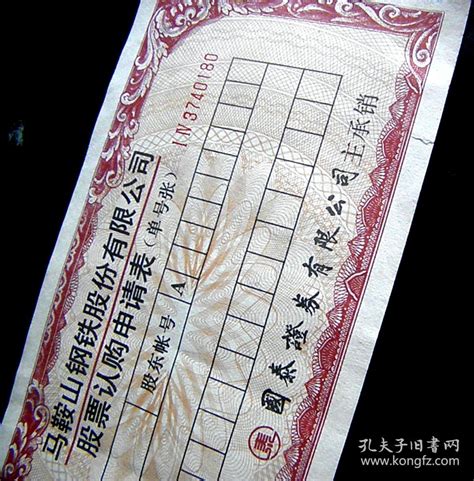 马鞍山钢铁股份有限公司
股票认购申请表(单号张)
IN3740180
股东帐号 A
泰 國泰證券有限公司 主承销
孔夫子旧书网
www.kongfz.com